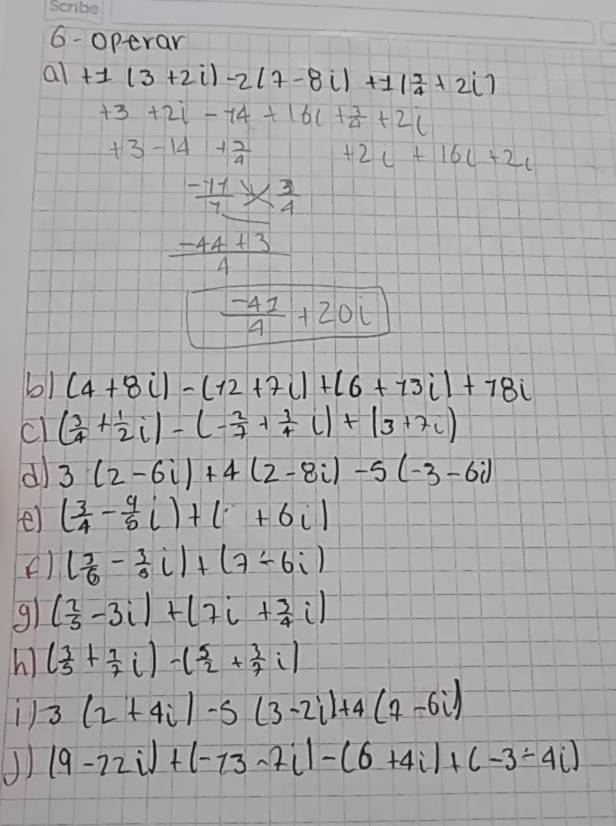 Scribe
6-operar
a) +1 (3+2i) -2(7-8i) +1(3/4 + 2i)
+3 +2i - 14 + 16i + 3/4 + 2i
+3-14 +3/4 +2i + 16i +2i
-11/1 3/4
-44+3/4
-41/4 + 20i
b) (4+8i) - (12+7i) + (6+13i) + 18i
c) (3/4 + 1/2i) - (-2/7 + 3/4 i) + (3+7i)
d) 3 (2-6i) + 4(2-8i) -5(-3-6i)
e) (3/4 - 9/5 i) + ( + 6i)
f) (3/6 - 3/8 i) + (7-6i)
g) (2/3 -3i) + (7i + 3/4 i)
h) (3/5 + 3/7 i) - (5/2 + 3/7 i)
i) 3 (2+4i) -5 (3-2i) +4 (7-6i)
j) (9-12i) + (-13-7i) - (6+4i) + (-3-4i)